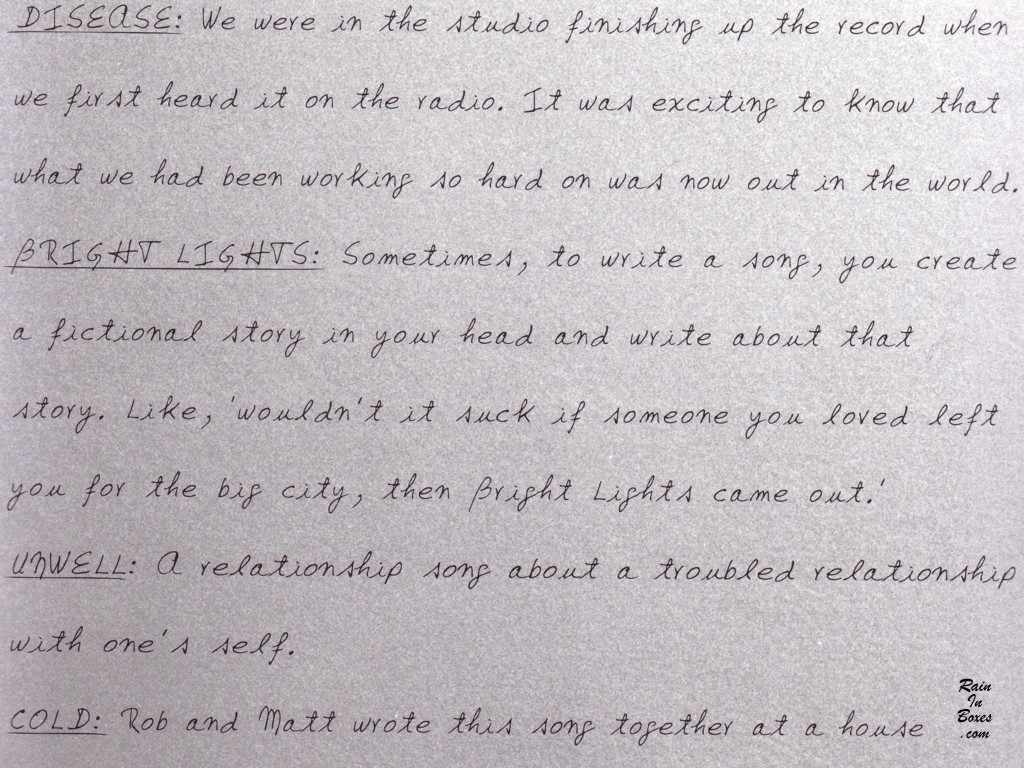 DISEASE: We were in the studio finishing up the record when
we first heard it on the radio. It was exciting to know that
what we had been working so hard on was now out in the world.
BRIGHT LIGHTS: Sometimes, to write a song, you create
a fictional story in your head and write about that
story. Like, 'wouldn't it suck if someone you loved left
you for the big city, then Bright Lights came out.'
UNWELL: A relationship song about a troubled relationship
with one's self.
COLD: Rob and Matt wrote this song together at a house
Rain
In
Boxes
.com